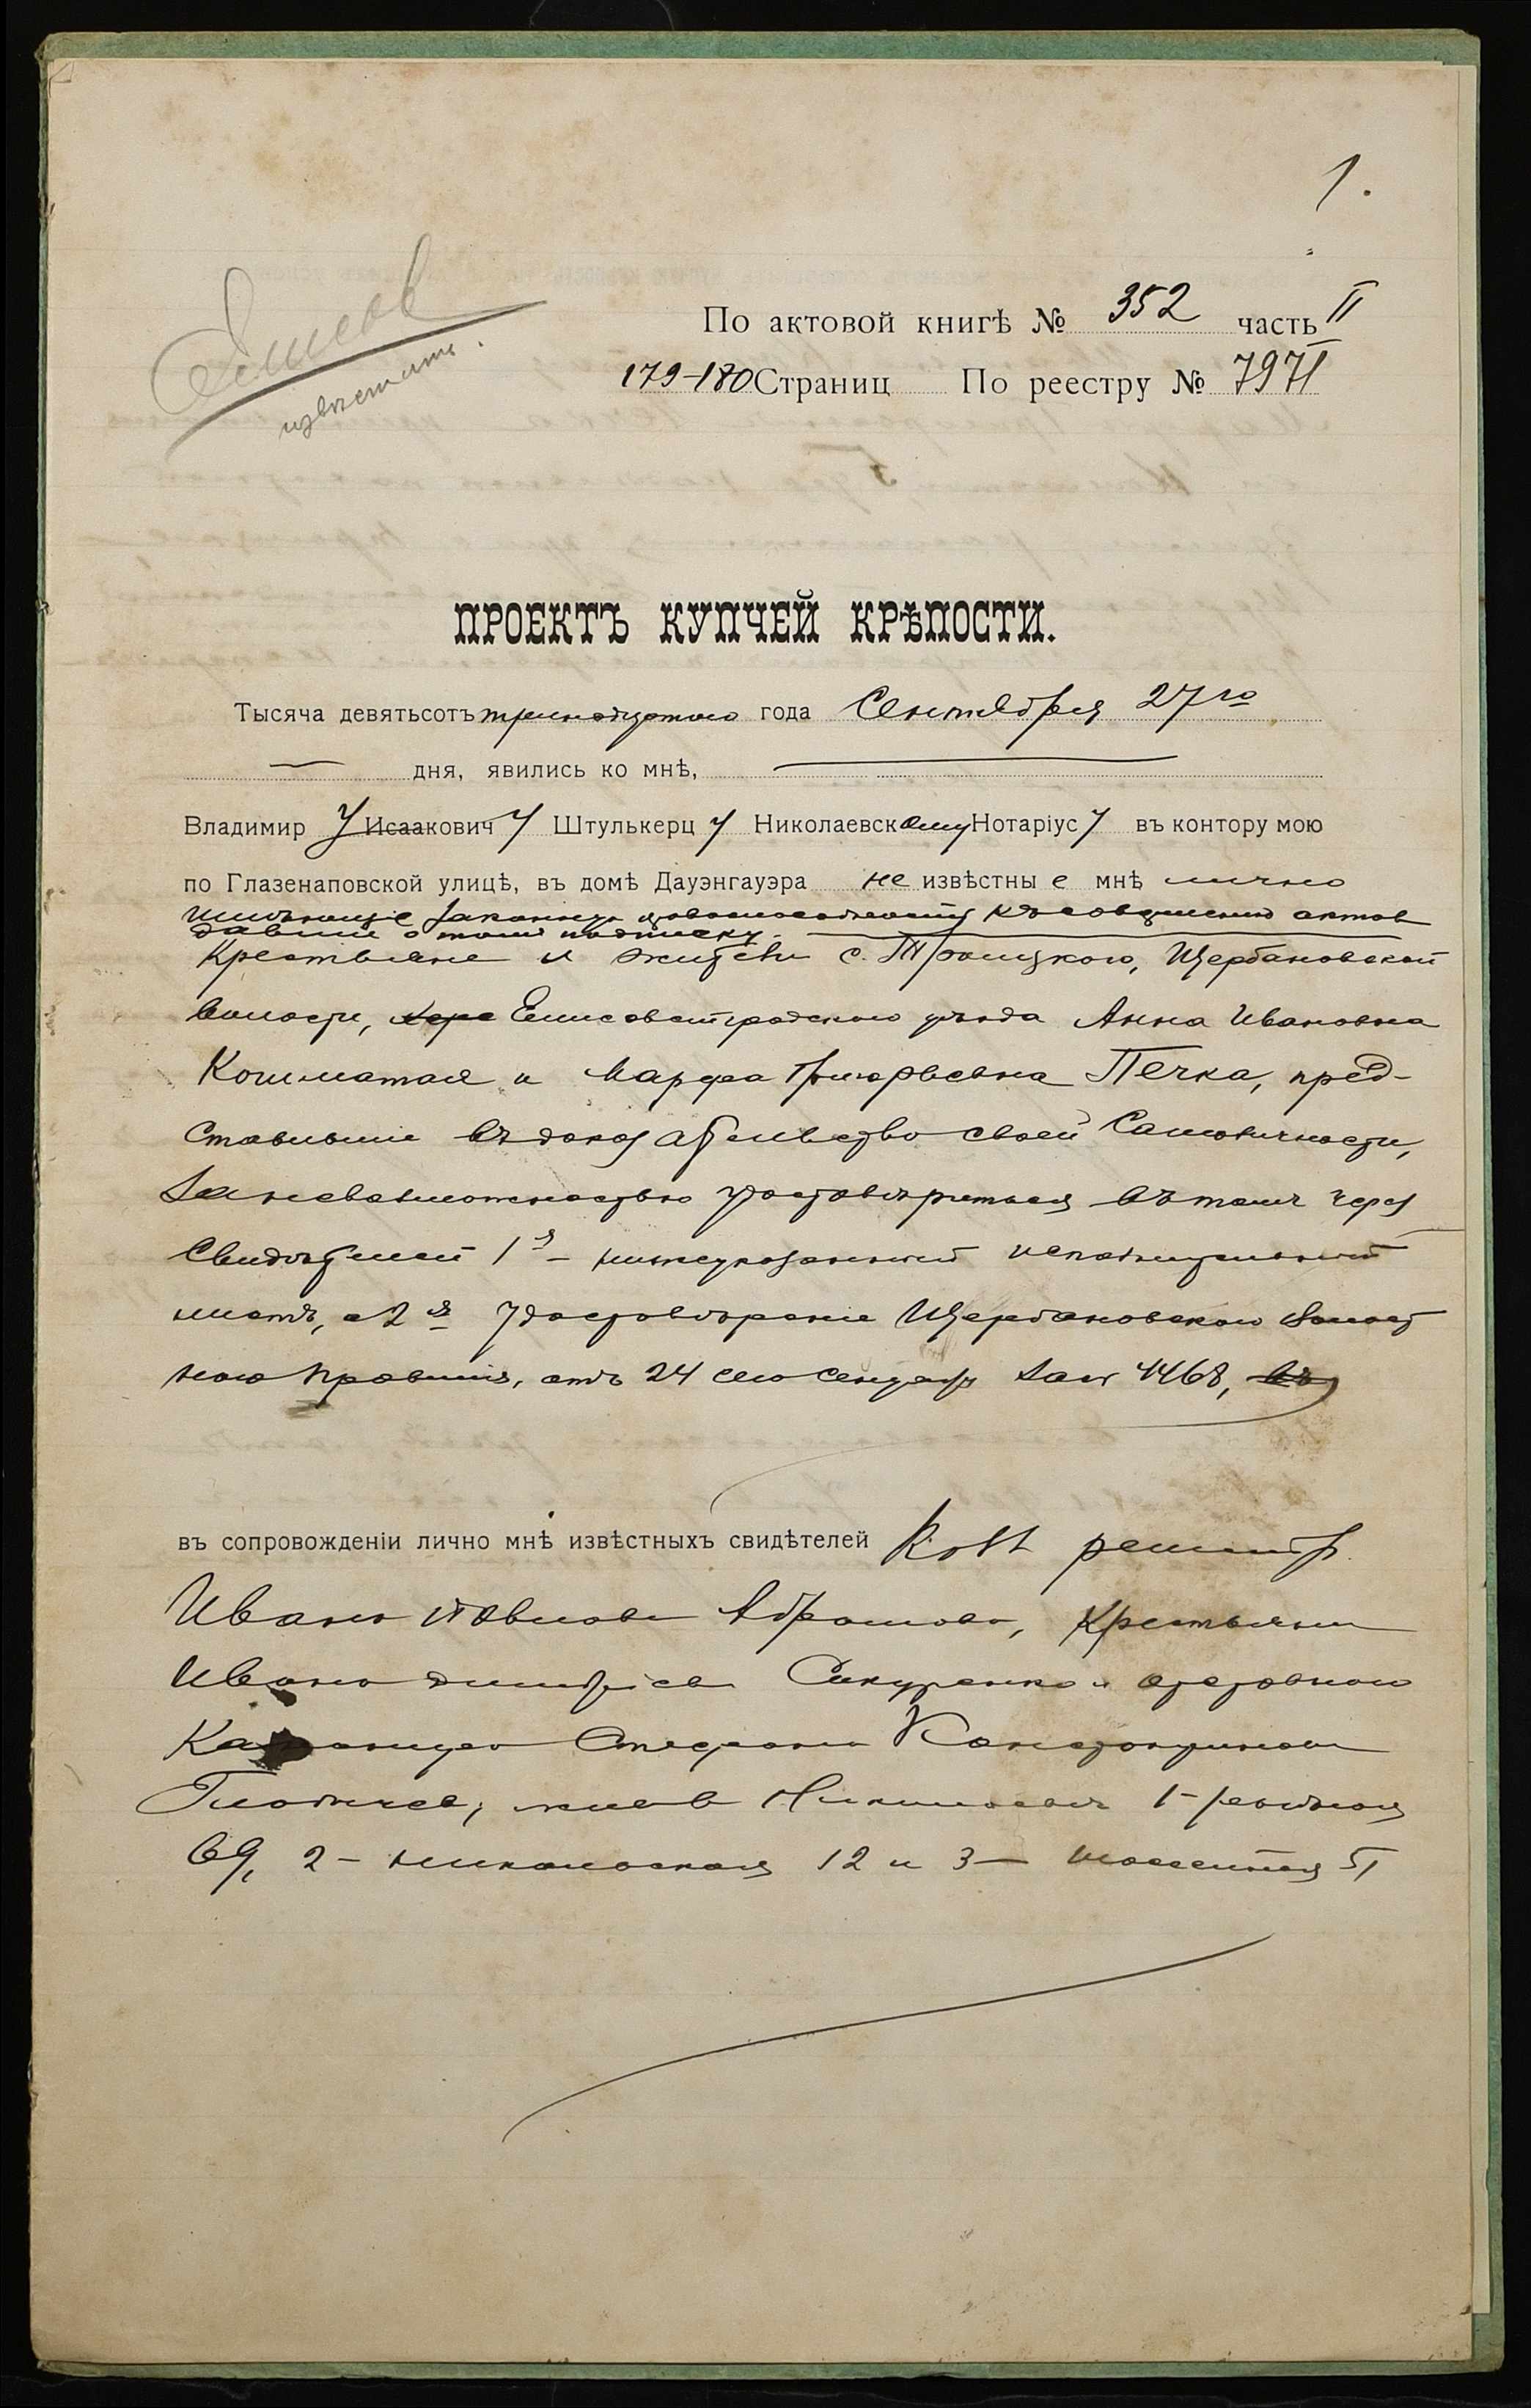 1.
По актовой книгѣ № 352 часть II
179-180 Страниц По реестру № 7971
извѣстить.
ПРОЕКТЪ КУПЧЕЙ КРѢПОСТИ.
Тысяча девятьсотъ тринадцатого года Сентября 27го
дня, явились ко мнѣ,
Владимир У Исаакович У Штулькерц У Николаевскому Нотаріус У въ контору мою
по Глазенаповской улицѣ, въ домѣ Дауэнгауэра не извѣстны е мнѣ лично
имѣющіе законную правоспособность къ совершенію актов
давшіе о томъ подписку.
Крестьяне и жители с. Троицкого, Щербановской
волости, Елисаветградского уѣзда Анна Ивановна
и Марфа Григорьевна Печка, пред-
ставившіе въ доказательство своей Самоличности,
за невозможностью удостовѣриться въ томъ через
Свидѣтелей 1й – нижеуказанный исполнительный
листъ, а 2я удостовѣреніе Щербановского Волост
ного Правленія, отъ 24 сего Сентября за № 4468, въ
въ сопровожденіи лично мнѣ извѣстныхъ свидѣтелей Колл регистр.
Иван Павлова Абрамова, Крестьянин
Ивана Дмитріева и отставного
Степана Константинова
живъ 1-
69, 2- Никольская 12 и 3- 51